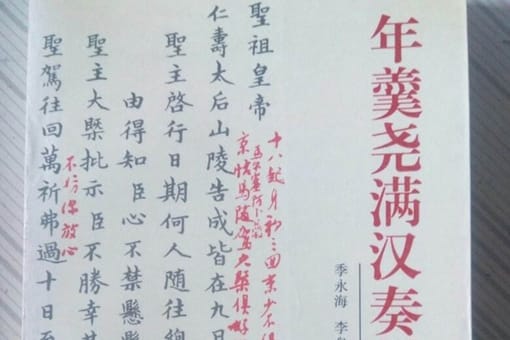 年羹尧满汉奏
季永海 李
聖祖皇帝
仁壽太后山陵告成皆在九日
聖主啓行日期何人隨往總
由得知臣心不禁懸
聖主大槩批示臣不勝幸甚
聖駕往回萬祈弗過十日至
十八起身初三回京少不得
京情馬隨駕大槩俱好
不妨你放心